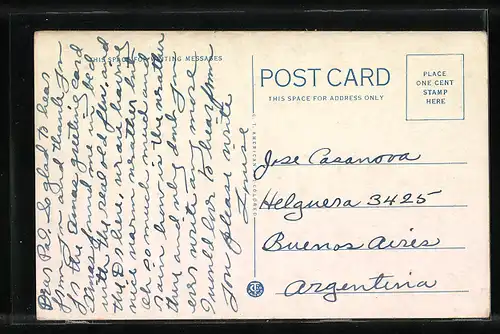 THIS SPACE FOR WRITING MESSAGES
Dear Pal. So glad to hear
from you and thank you
for the xmas greeting card
Xmas found me in bed
with the real old flu and
the Ds here, we are having
nice warm weather but
Oh so much mud and
rain how is the weather
there and why don't you
ever write any more
I would love to hear from
you please write
Louise
POST CARD
THIS SPACE FOR ADDRESS ONLY
PLACE
ONE CENT
STAMP
HERE
Jose Casanova
Helguera 3425
Buenos Aires
Argentina